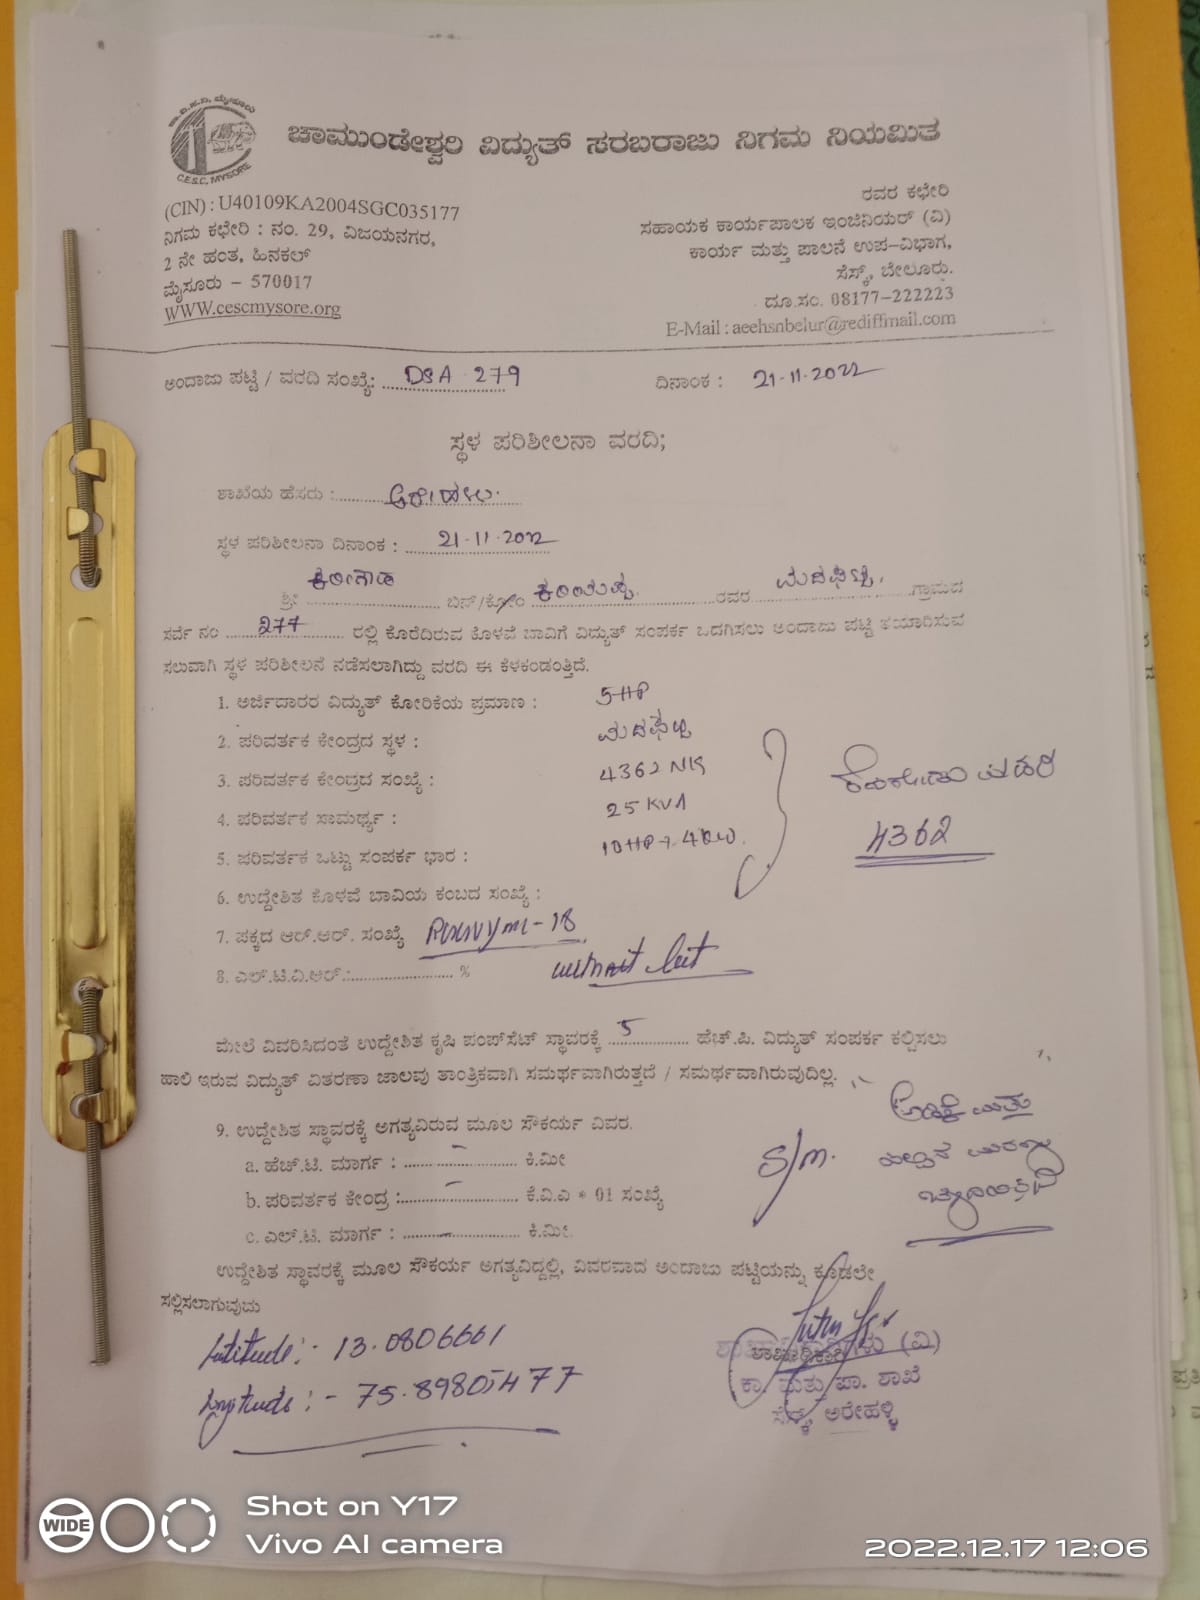 ಕಾ.ವಿ.ಸ.ನಿ. ಮೈಸೂರು
C.E.S.C, MYSORE
ಚಾಮುಂಡೇಶ್ವರಿ ವಿದ್ಯುತ್ ಸರಬರಾಜು ನಿಗಮ ನಿಯಮಿತ
(CIN) : U40109KA2004SGC035177
ನಿಗಮ ಕಛೇರಿ : ನಂ. 29, ವಿಜಯನಗರ,
2 ನೇ ಹಂತ, ಹಿನಕಲ್
ಮೈಸೂರು – 570017
WWW.cescmysore.org
ರವರ ಕಛೇರಿ
ಸಹಾಯಕ ಕಾರ್ಯಪಾಲಕ ಇಂಜಿನಿಯರ್ (ವಿ)
ಕಾರ್ಯ ಮತ್ತು ಪಾಲನೆ ಉಪ–ವಿಭಾಗ,
ಸೆಸ್ಕ್, ಬೇಲೂರು.
ದೂ.ಸಂ. 08177–222223
E-Mail : aeehsnbelur@rediffmail.com
ಅಂದಾಜು ಪಟ್ಟಿ / ವರದಿ ಸಂಖ್ಯೆ: DSA 279 ದಿನಾಂಕ : 21-11-2022
ಸ್ಥಳ ಪರಿಶೀಲನಾ ವರದಿ;
ಶಾಖೆಯ ಹೆಸರು : ಅರೇಹಳ್ಳಿ
ಸ್ಥಳ ಪರಿಶೀಲನಾ ದಿನಾಂಕ : 21-11-2022
ಶ್ರೀ ಬಿನ್/ಕೋಂ ಕರಿಯಪ್ಪ ರವರ ಗ್ರಾಮದ
ಸರ್ವೆ ನಂ 277 ರಲ್ಲಿ ಕೊರೆದಿರುವ ಕೊಳವೆ ಬಾವಿಗೆ ವಿದ್ಯುತ್ ಸಂಪರ್ಕ ಒದಗಿಸಲು ಅಂದಾಜು ಪಟ್ಟಿ ತಯಾರಿಸುವ
ಸಲುವಾಗಿ ಸ್ಥಳ ಪರಿಶೀಲನೆ ನಡೆಸಲಾಗಿದ್ದು ವರದಿ ಈ ಕೆಳಕಂಡಂತ್ತಿದೆ.
1. ಅರ್ಜಿದಾರರ ವಿದ್ಯುತ್ ಕೋರಿಕೆಯ ಪ್ರಮಾಣ : 5HP
2. ಪರಿವರ್ತಕ ಕೇಂದ್ರದ ಸ್ಥಳ :
3. ಪರಿವರ್ತಕ ಕೇಂದ್ರದ ಸಂಖ್ಯೆ : 4362
4. ಪರಿವರ್ತಕ ಸಾಮರ್ಥ್ಯ : 25 KVA
4362
5. ಪರಿವರ್ತಕ ಒಟ್ಟು ಸಂಪರ್ಕ ಭಾರ : 10HP
6. ಉದ್ದೇಶಿತ ಕೊಳವೆ ಬಾವಿಯ ಕಂಬದ ಸಂಖ್ಯೆ :
7. ಪಕ್ಕದ ಆರ್.ಆರ್. ಸಂಖ್ಯೆ
8. ಎಲ್.ಟಿ.ವಿ.ಆರ್.: %
ಮೇಲೆ ವಿವರಿಸಿದಂತೆ ಉದ್ದೇಶಿತ ಕೃಷಿ ಪಂಪ್‌ಸೆಟ್ ಸ್ಥಾವರಕ್ಕೆ 5 ಹೆಚ್.ಪಿ. ವಿದ್ಯುತ್ ಸಂಪರ್ಕ ಕಲ್ಪಿಸಲು
ಹಾಲಿ ಇರುವ ವಿದ್ಯುತ್ ವಿತರಣಾ ಜಾಲವು ತಾಂತ್ರಿಕವಾಗಿ ಸಮರ್ಥವಾಗಿರುತ್ತದೆ / ಸಮರ್ಥವಾಗಿರುವುದಿಲ್ಲ.
9. ಉದ್ದೇಶಿತ ಸ್ಥಾವರಕ್ಕೆ ಅಗತ್ಯವಿರುವ ಮೂಲ ಸೌಕರ್ಯ ವಿವರ.
a. ಹೆಚ್.ಟಿ. ಮಾರ್ಗ : – ಕಿ.ಮೀ
b. ಪರಿವರ್ತಕ ಕೇಂದ್ರ : – ಕೆ.ವಿ.ಎ * 01 ಸಂಖ್ಯೆ
c. ಎಲ್.ಟಿ. ಮಾರ್ಗ : – ಕಿ.ಮೀ.
S/m.
ಉದ್ದೇಶಿತ ಸ್ಥಾವರಕ್ಕೆ ಮೂಲ ಸೌಕರ್ಯ ಅಗತ್ಯವಿದ್ದಲ್ಲಿ, ವಿವರವಾದ ಅಂದಾಜು ಪಟ್ಟಿಯನ್ನು ಕೂಡಲೇ
ಸಲ್ಲಿಸಲಾಗುವುದು
Latitude :- 13.0806661
Longitude :- 75.89805477
ಶಾಖಾಧಿಕಾರಿ (ವಿ)
ಕಾ. ಮತ್ತು ಪಾ. ಶಾಖೆ
ಸೆಸ್ಕ್, ಅರೇಹಳ್ಳಿ
WIDE
Shot on Y17
Vivo AI camera
2022.12.17 12:06